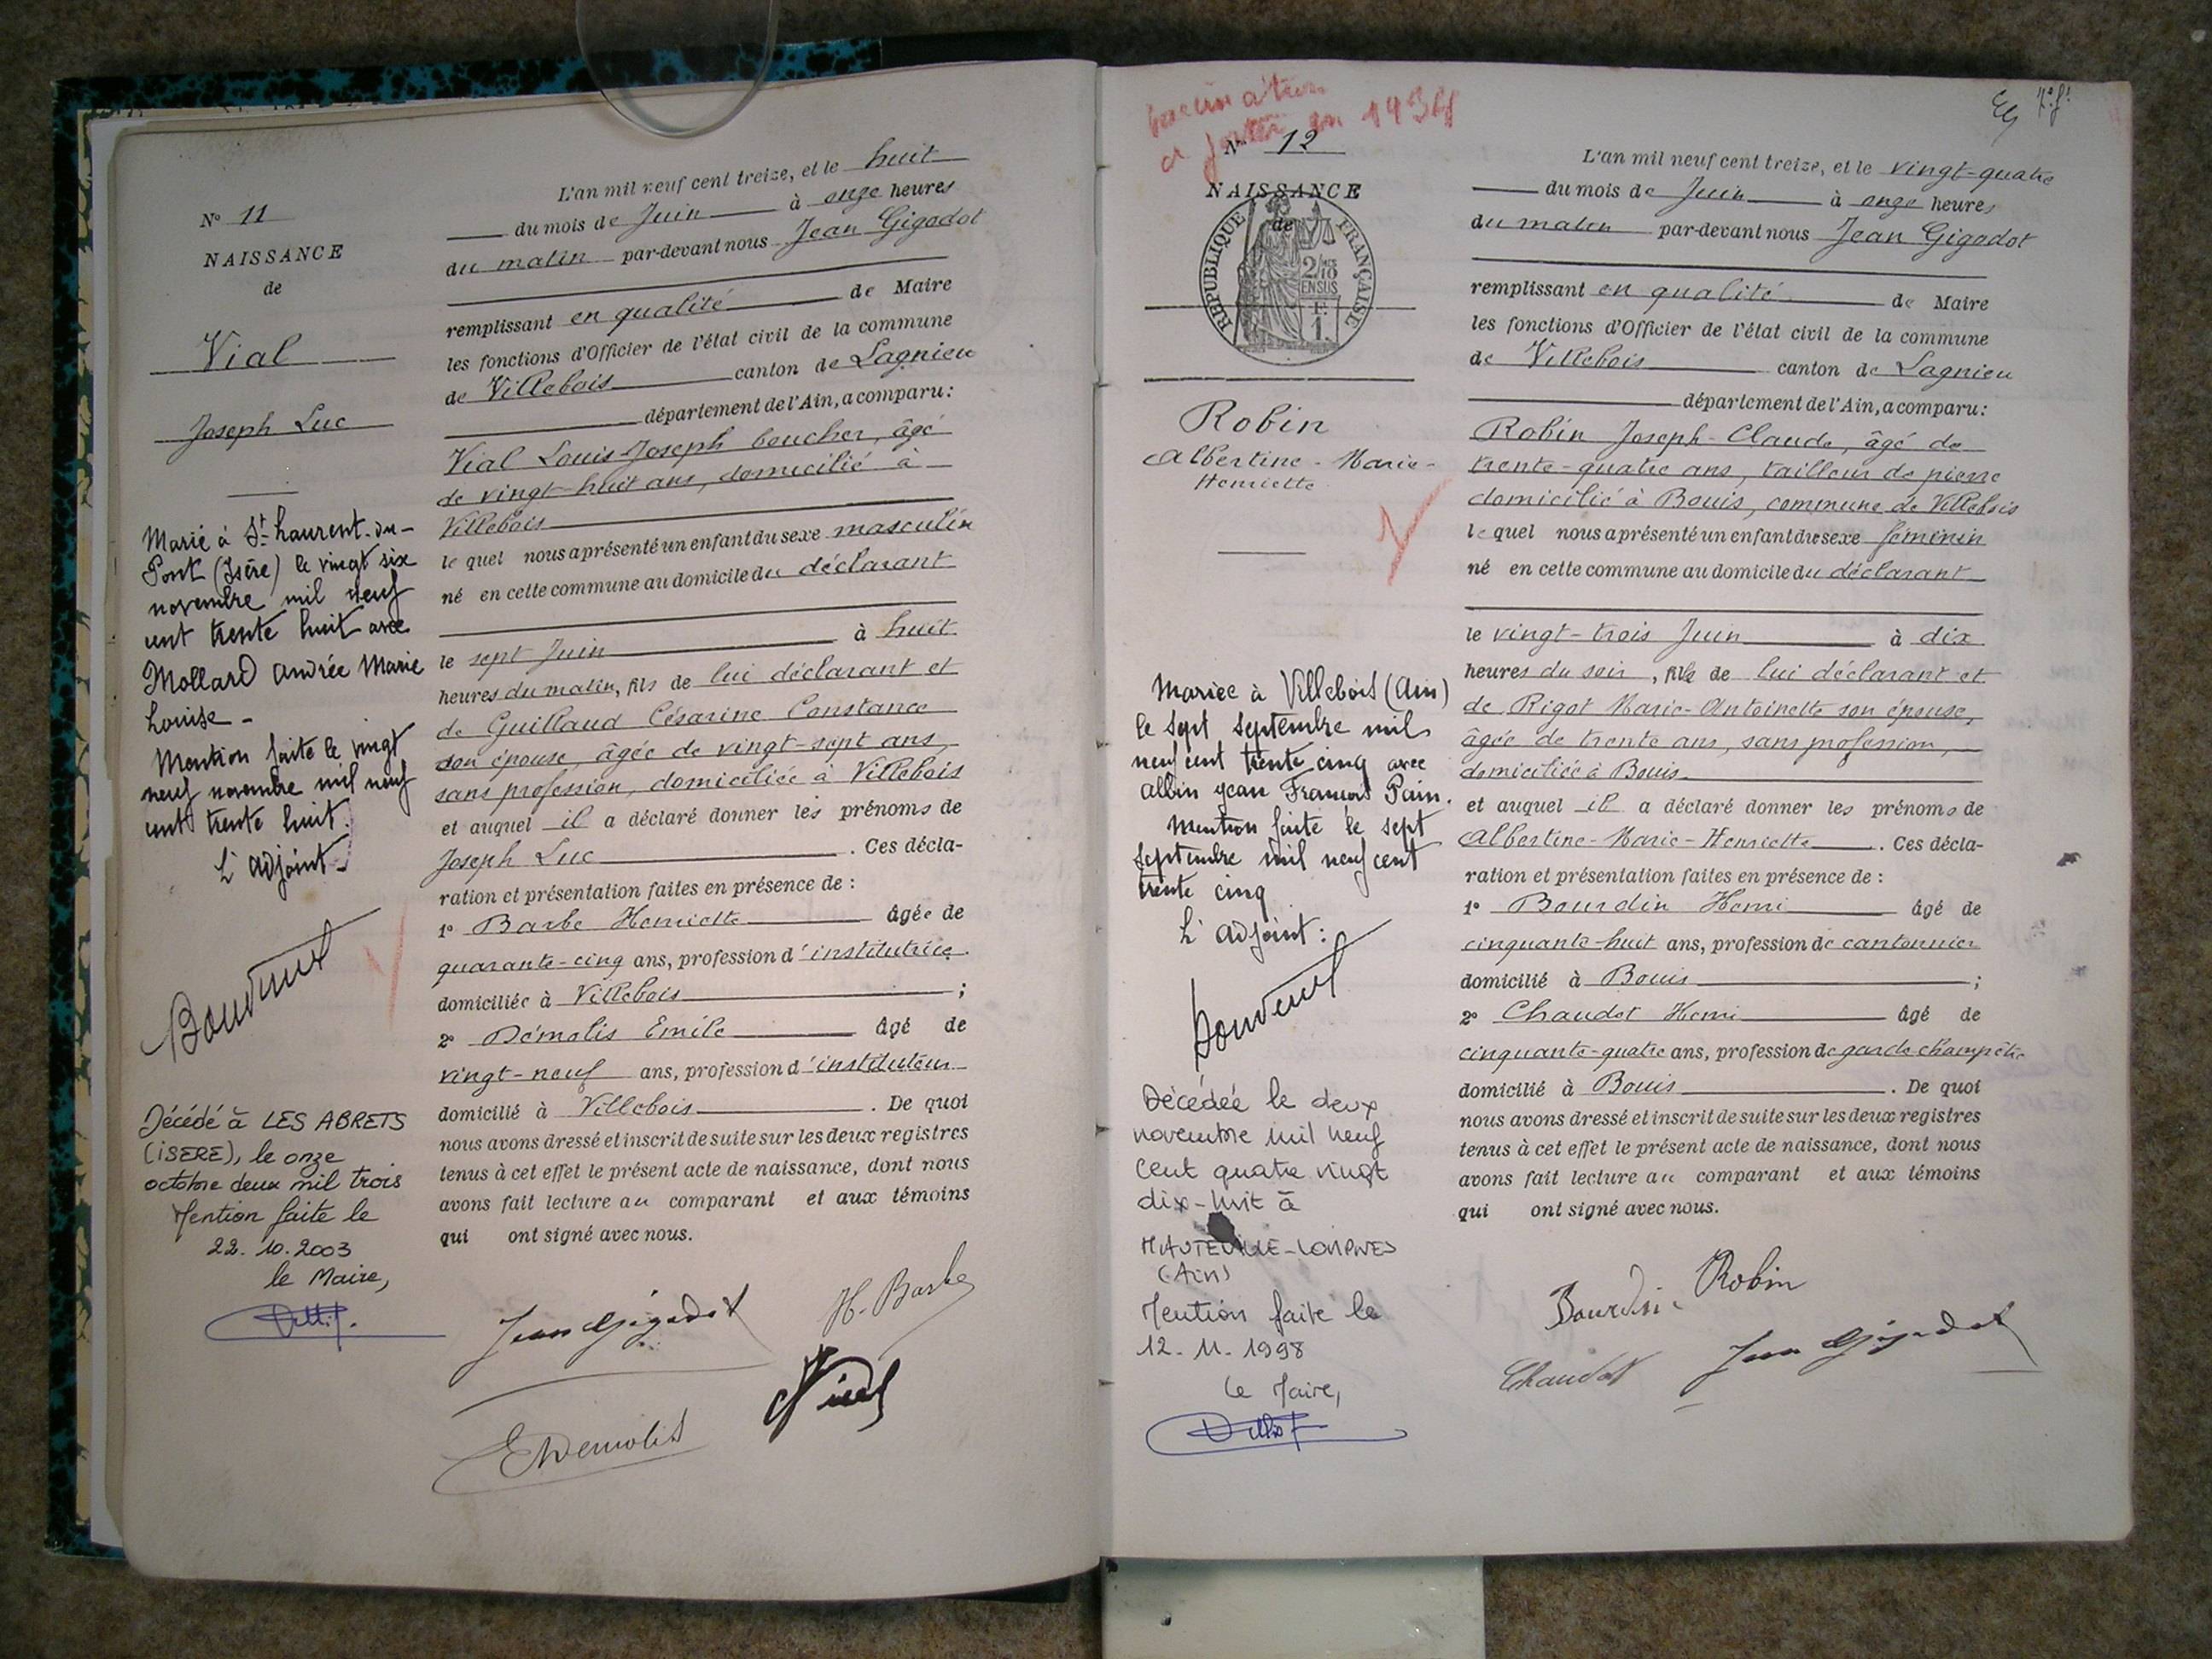 N° 11
NAISSANCE
de
Vial
Joseph Luc
Marié à St Laurent-du-
Pont (Isère) le vingt six
novembre mil neuf
cent trente huit avec
Mollard Andrée Marie
Louise -
Mention faite le vingt
neuf novembre mil neuf
cent trente huit.
L'adjoint
Décédé à LES ABRETS
(ISERE), le onze
octobre deux mil trois
Mention faite le
22.10.2003
le Maire,
L'an mil neuf cent treize, et le huit
du mois de Juin à onze heures
du matin par-devant nous Jean Gigodot
remplissant en qualité de Maire
les fonctions d'Officier de l'état civil de la commune
de Villebois canton de Lagnieu
département de l'Ain, a comparu:
Vial Louis Joseph boucher, âgé
de vingt-huit ans, domicilié à
Villebois
lequel nous a présenté un enfant du sexe masculin
né en cette commune au domicile du déclarant
le sept Juin à huit
heures du matin, fils de lui déclarant et
de Guillaud Césarine Constance
son épouse, âgée de vingt-sept ans,
sans profession, domiciliée à Villebois
et auquel il a déclaré donner les prénoms de
Joseph Luc. Ces décla-
ration et présentation faites en présence de :
1° Barbe Henriette âgée de
quarante-cinq ans, profession d'institutrice
domiciliée à Villebois ;
2° Démolis Emile âgé de
vingt-neuf ans, profession d'instituteur
domicilié à Villebois. De quoi
nous avons dressé et inscrit de suite sur les deux registres
tenus à cet effet le présent acte de naissance, dont nous
avons fait lecture au comparant et aux témoins
qui ont signé avec nous.
Jean Gigodot H. Barbe
Vial
E Demolis
vaccination
à Jouter en 1934
N° 12
NAISSANCE
de
REPUBLIQUE FRANÇAISE
2/10
EN SUS
1F.
Robin
Albertine-Marie-
Henriette
Mariée à Villebois (Ain)
le sept septembre mil
neuf cent trente cinq avec
Albin Jean François Pain.
Mention faite le sept
septembre mil neuf cent
trente cinq
L'adjoint:
Décédée le deux
novembre mil neuf
cent quatre vingt
dix-huit à
HAUTEVILLE-LOMPNES
(Ain)
Mention faite le
12-11-1998
Le Maire,
L'an mil neuf cent treize, et le vingt-quatre
du mois de Juin à onze heures
du matin par-devant nous Jean Gigodot
remplissant en qualité de Maire
les fonctions d'Officier de l'état civil de la commune
de Villebois canton de Lagnieu
département de l'Ain, a comparu:
Robin Joseph-Claude, âgé de
trente-quatre ans, tailleur de pierre
domicilié à Bouis, commune de Villebois
lequel nous a présenté un enfant du sexe féminin
né en cette commune au domicile du déclarant
le vingt-trois Juin à dix
heures du soir, fille de lui déclarant et
de Rigot Marie-Antoinette son épouse,
âgée de trente ans, sans profession,
domiciliée à Bouis
et auquel il a déclaré donner les prénoms de
Albertine-Marie-Henriette. Ces décla-
ration et présentation faites en présence de :
1° Bourdin Henri âgé de
cinquante-huit ans, profession de cantonnier
domicilié à Bouis ;
2° Chaudet Henri âgé de
cinquante-quatre ans, profession de garde champêtre
domicilié à Bouis. De quoi
nous avons dressé et inscrit de suite sur les deux registres
tenus à cet effet le présent acte de naissance, dont nous
avons fait lecture au comparant et aux témoins
qui ont signé avec nous.
Bourdin Robin
Chaudet Jean Gigodot